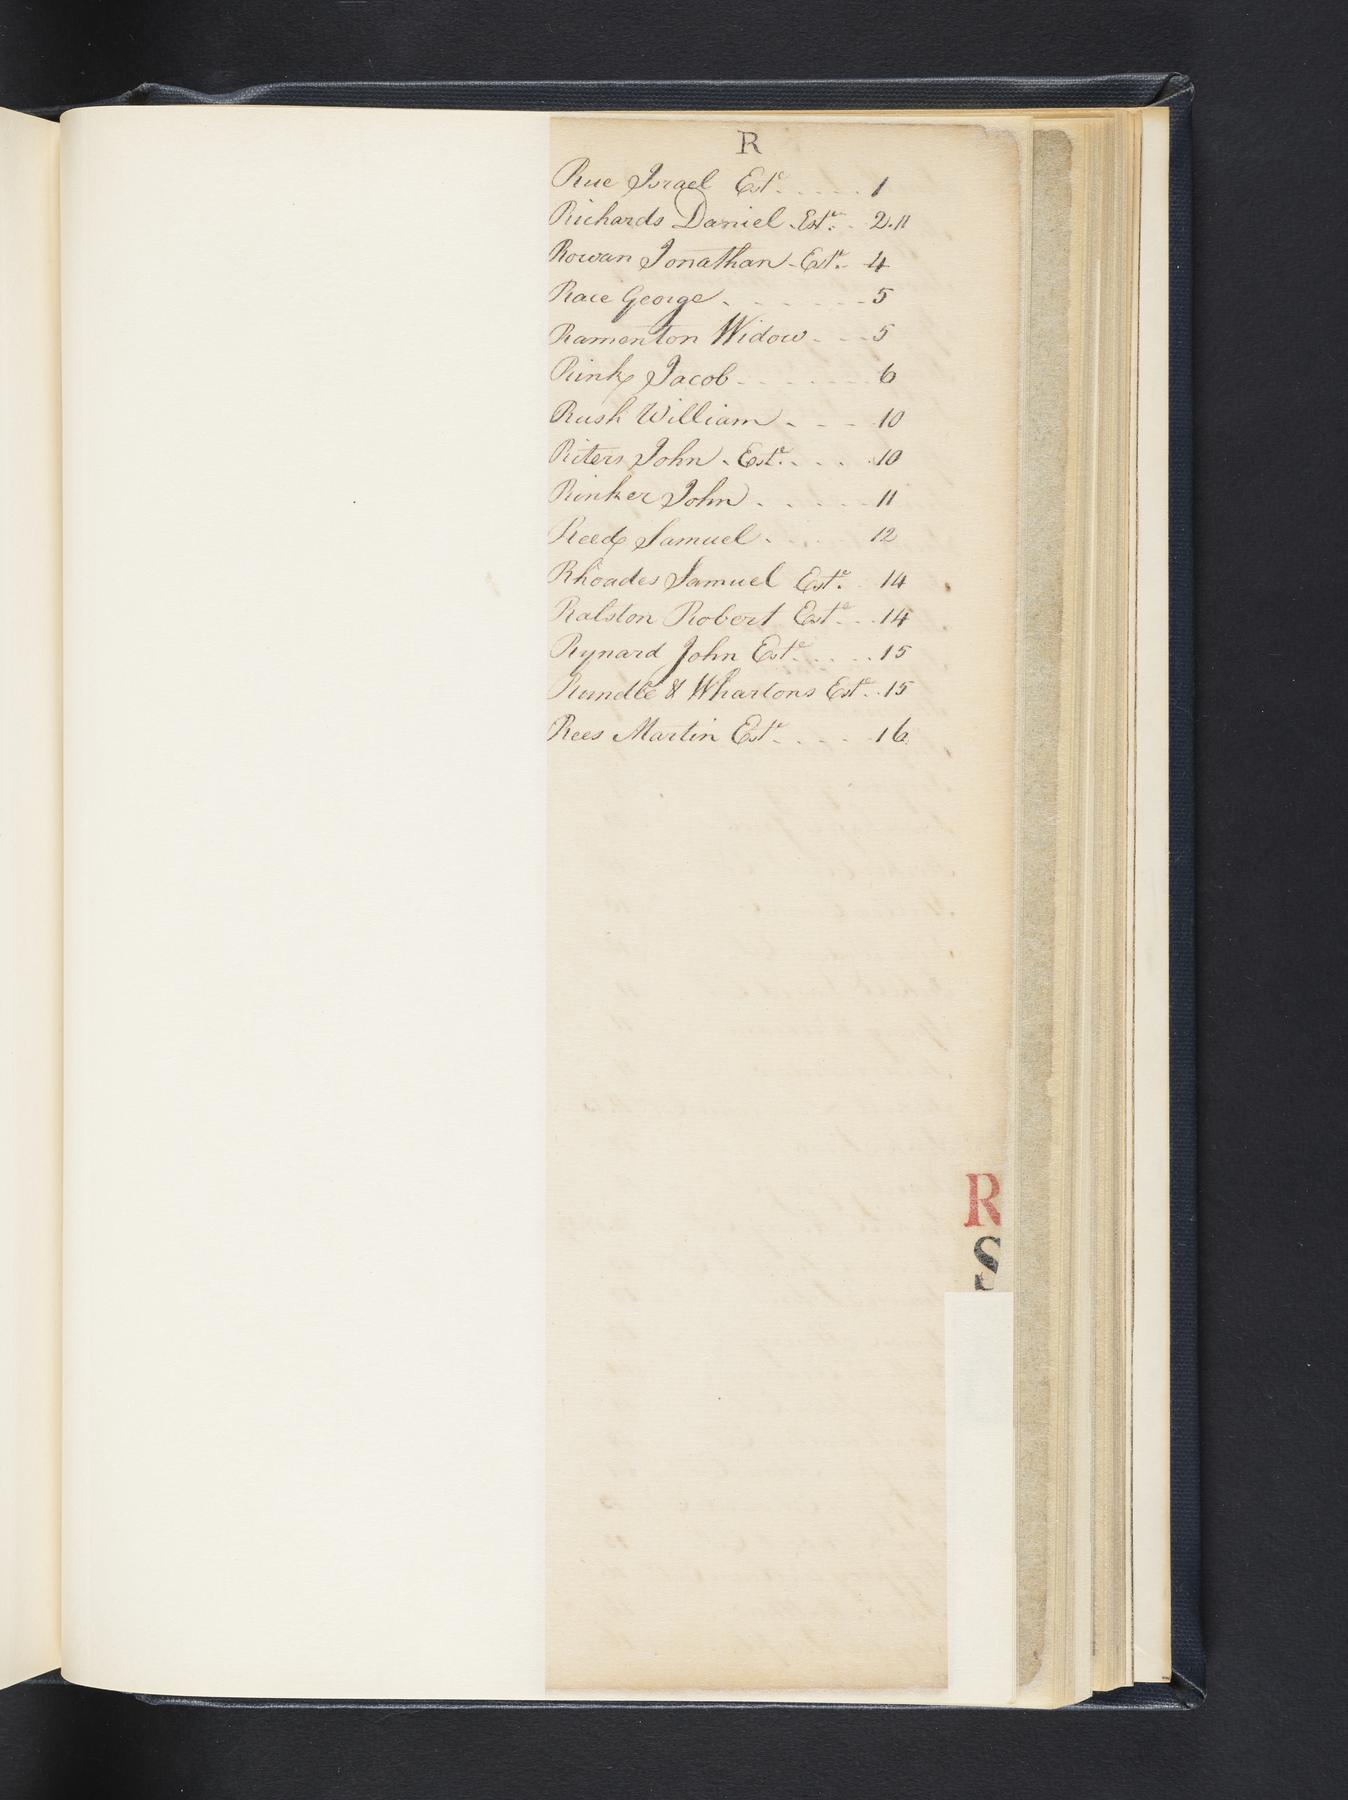 R
Rue Israel Est.e . . . . . 1
Richards Daniel . Est.e . . 2.11
Rowan Jonathan - Est.e - 4
Race George . - - - - - - 5
Ramenton Widow - - - 5
Rink Jacob - - - - - - - 6
Rush William - - - - 10
Riters John . Est.e . . . . 10
Rinker John . . . . . 11
Reed Samuel . . . . . 12
Rhoades Samuel Est.e . 14
Ralston Robert Est.e . . 14
Rynard John Est.e . . . . 15
Rundle & Whartons Est.e . . 15
Rees Martin Est.e . . . . . 16
R
S